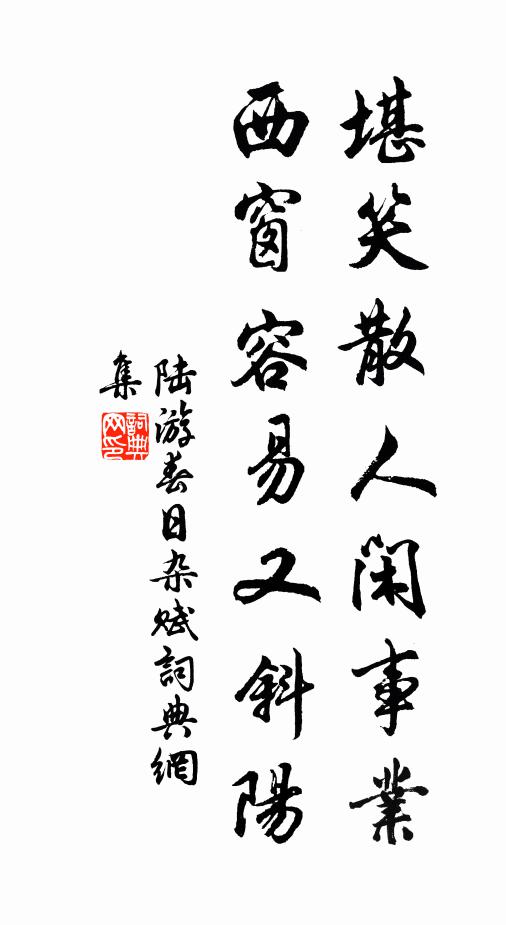 堪笑散人闲事業
西窗容易又斜陽
陆游春日杂赋詞典網
集
詞典网印